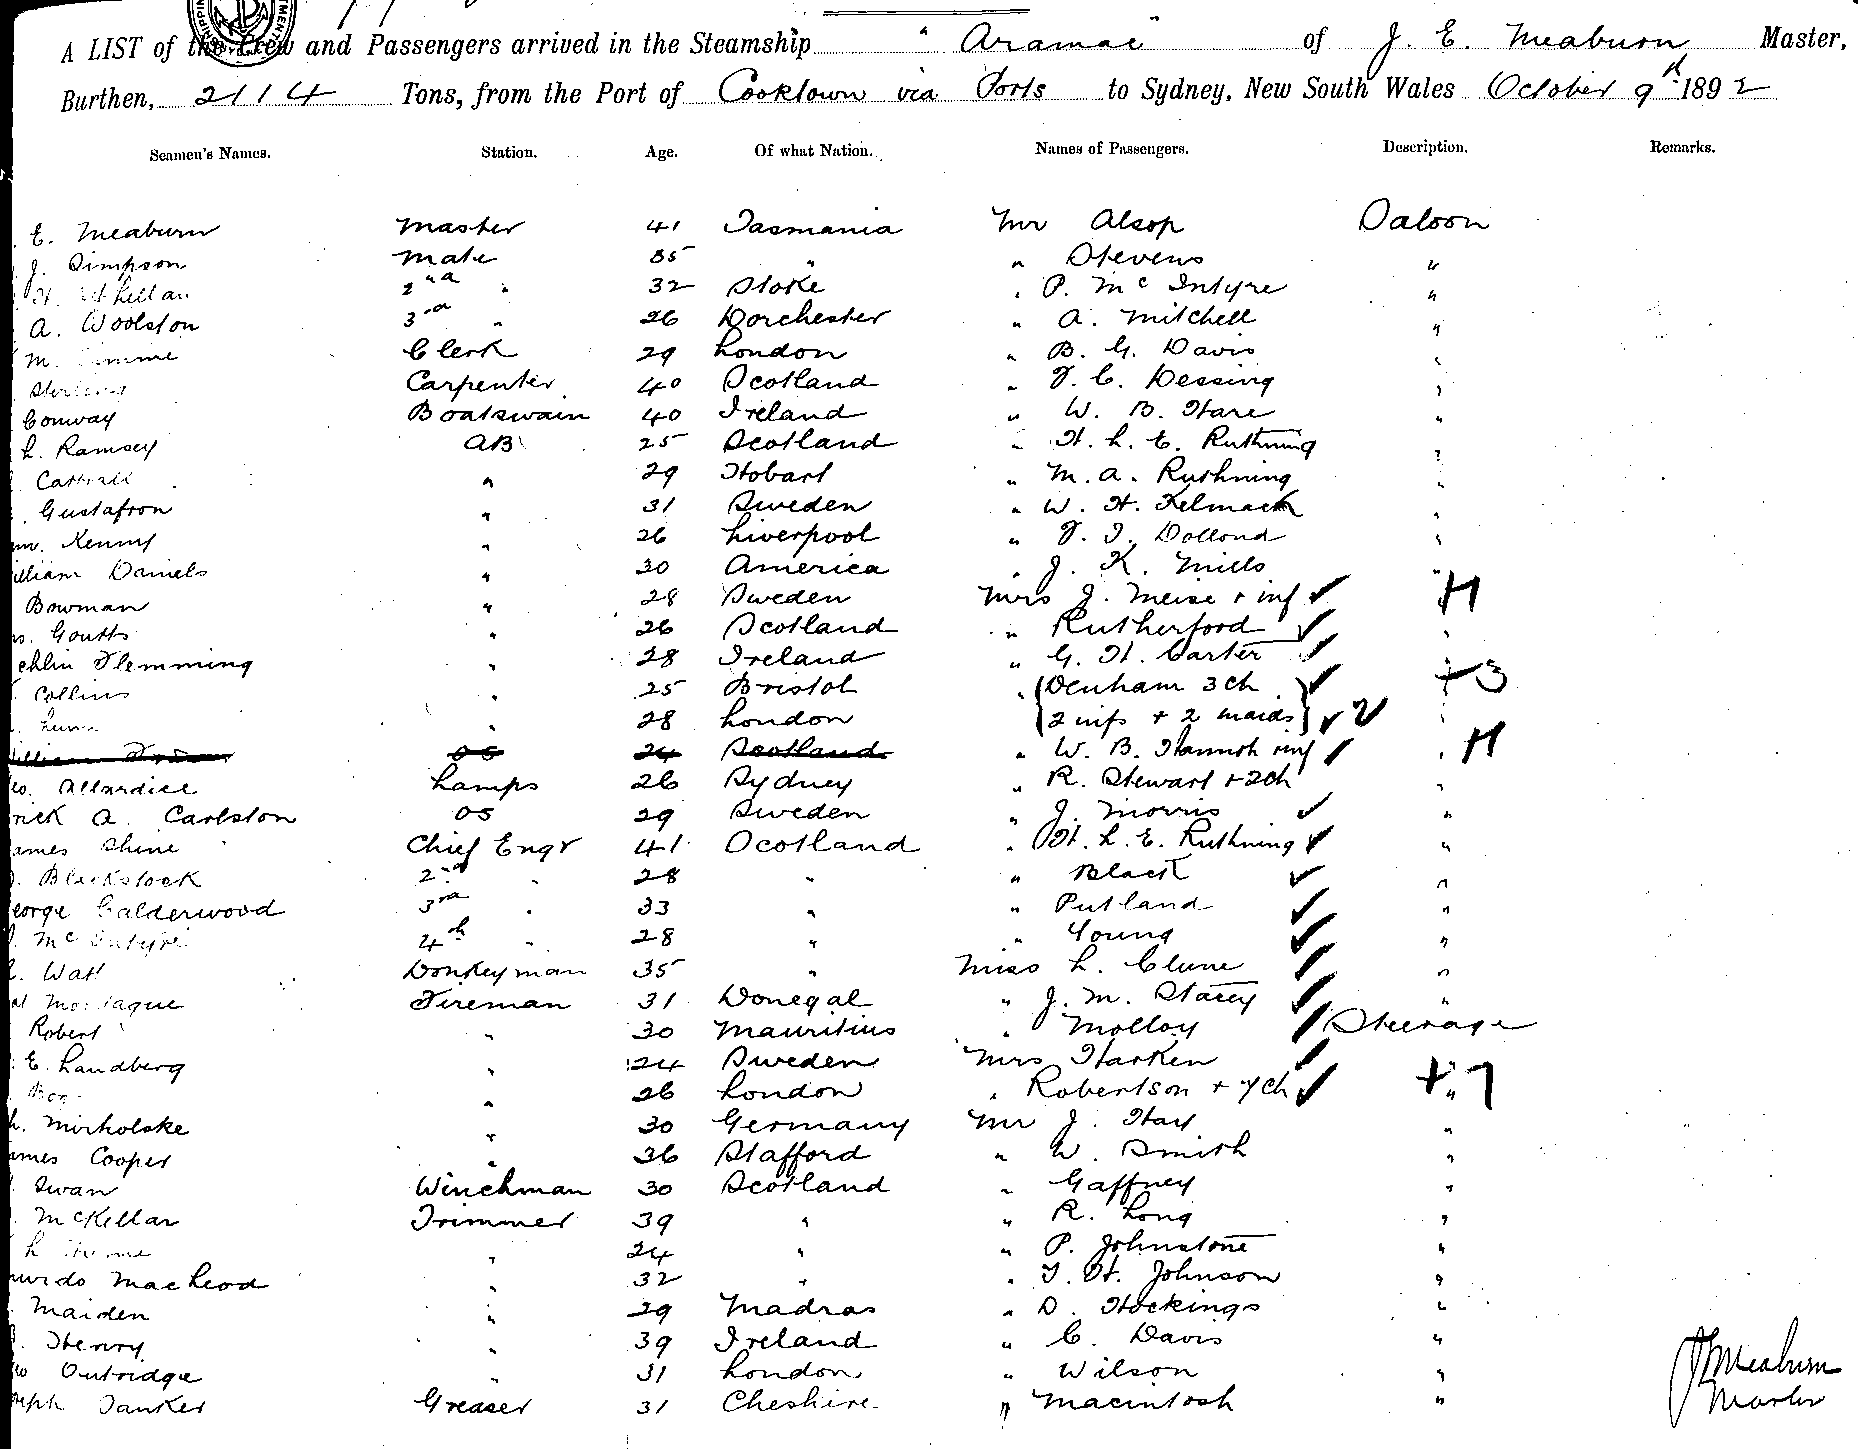 A LIST of the Crew and Passengers arrived in the Steamship "Aramac" of J. E. Meaburn Master,
Burthen, 2114 Tons, from the Port of Cooktown via Ports to Sydney, New South Wales October 9th 1892
Seamen's Names. Station. Age. Of what Nation. Names of Passengers. Description. Remarks.
E. Meaburn Master 41 Tasmania Mr Alsop Saloon
J. Simpson Mate 35 " " Stevens "
H. 2nd " 32 Stoke " P. McIntyre "
A. Woolston 3rd " 26 Dorchester " A. Mitchell "
M. Clerk 29 London " B. G. Davis "
Sterling Carpenter 40 Scotland " F. C. Dessing "
Conway Boatswain 40 Ireland " W. B. Hare "
L. Ramsey AB 25 Scotland " H. L. E. Ruthning "
" 29 Hobart " M. A. Ruthning "
Gustafson " 31 Sweden " W. H. Kelmack "
Kenny " 26 Liverpool " F. I. Dollond "
illiam Daniels " 30 America " J. K. Mills "
Bowman " 28 Sweden Mrs J. Meise + inf +1
Goutts " 26 Scotland " Rutherford "
chlin Flemming " 28 Ireland " G. H. Carter
Collins " 25 Bristol " (Denham 3 ch +3
" 28 London (2 infs + 2 maids) 2 "
OS 24 Scotland " W. B. Hannish inf " +1
eo. Allardice Lamps 26 Sydney " R. Stewart + 2ch "
rick A. Carlston OS 29 Sweden " J. Morris "
ames Shine Chief Engr 41 Scotland " H. L. E. Ruthning "
Blackstock 2nd " 28 " " Black "
eorge Calderwood 3rd " 33 " " Putland "
McIntyre 4th " 28 " " Young "
Watt Donkeyman 35 " Miss L. Clune "
Montague Fireman 31 Donegal " J. M. Stacey "
Robert " 30 Mauritius " Molloy Steerage
E. Landberg " 24 Sweden Mrs Harken
" 26 London " Robertson + 7 ch " +7
Mirholske " 30 Germany Mr J. Hay "
ames Cooper " 36 Stafford " W. Smith "
Swan Winchman 30 Scotland " Gaffney "
McKellar Trimmer 39 " " R. Long "
L " 24 " " P. Johnstone "
urdo MacLeod " 32 " " T. H. Johnson "
Maiden " 29 Madras " D. Hockings "
Henry " 39 Ireland " C. Davis "
Outridge " 31 London " Wilson "
seph Tanker Greaser 31 Cheshire " Macintosh "
J Meaburn
Master